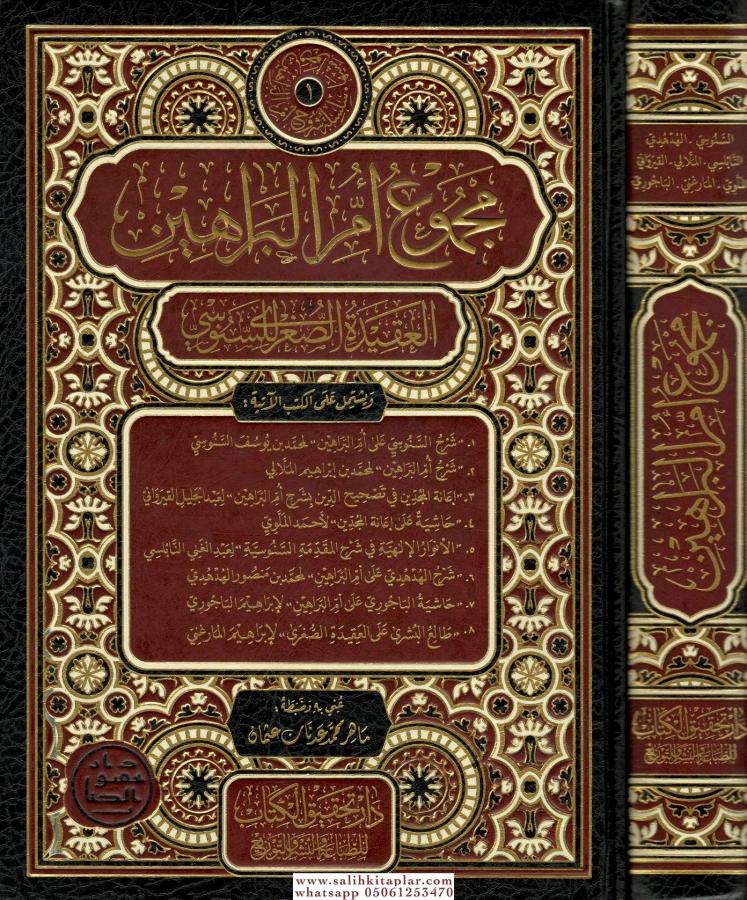 ١
مجموع أم البراهين
العقيدة الصغرى للسنوسي
ويشتمل على الكتب الآتية:
١. "شَرْحُ السَّنُوسِيِّ عَلَى أُمِّ البَرَاهِين" لمحمد بن يُوسُف السَّنُوسِيّ
٢. "شَرْحُ أُمِّ البَرَاهِين" لمحمد بن إبراهيم الملالي
٣. "إعانة المجدّين في تصحيح الدين بشرح أم البراهين" لعبد الجليل القيرواني
٤. "حاشية على إعانة المجدين" لأحمد الملوي
٥. "الأنوار الإلهية في شرح المقدمة السنوسية" لعبد الغني النابلسي
٦. "شرح الهدهدي على أم البراهين" لمحمد بن منصور الهدهدي
٧. "حاشية الباجوري على أم البراهين" لإبراهيم الباجوري
٨. "طالع البشرى على العقيدة الصغرى" لإبراهيم المارغني
عني به وضبطه:
ماهر محمد عدنان عثمان
دار تحقيق الكتاب
للطباعة والنشر والتوزيع
السنوسي - الهدهدي
النابلسي - الملالي - القيرواني
الملوي - المارغني - الباجوري
مجموع أم البراهين
دار تحقيق الكتاب
للطباعة والنشر والتوزيع
www.salihkitaplar.com
whatsapp 05061253470